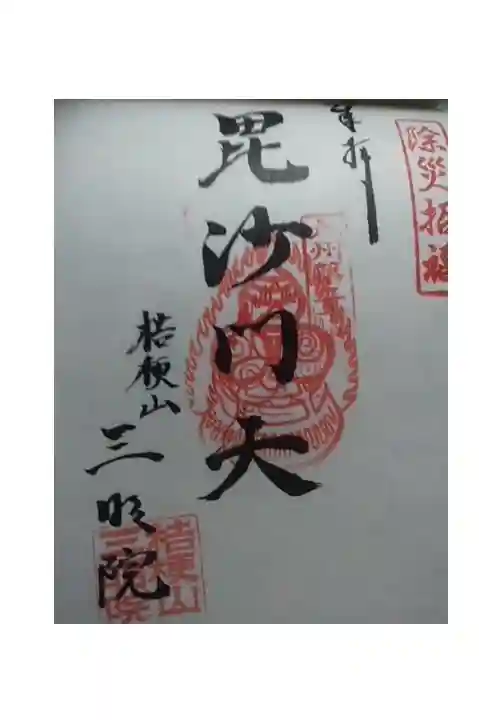 除災招福
奉拝
毘沙門天
桔梗山
三明院
桔梗山
三明院